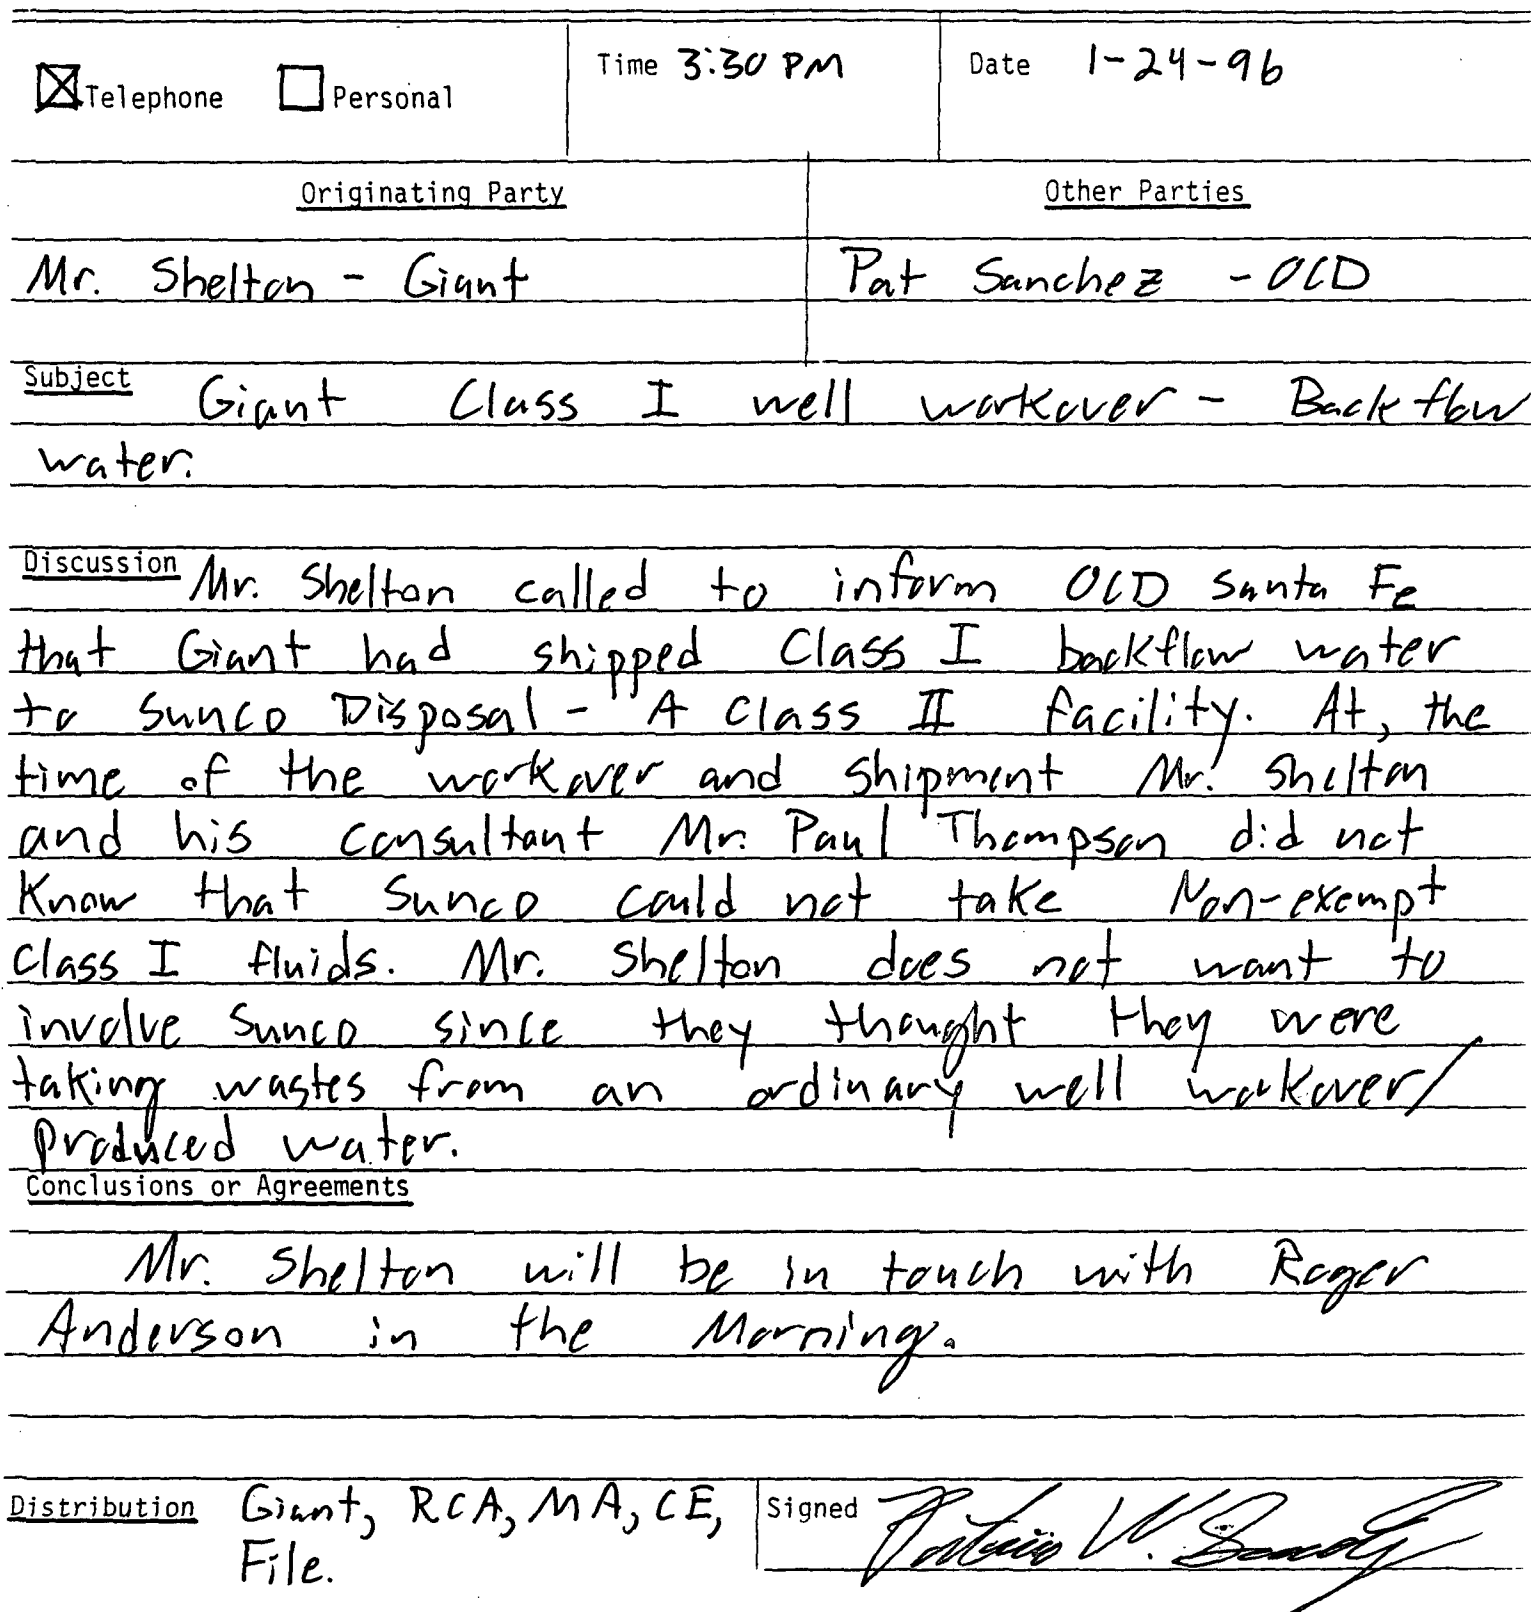 ☒ Telephone ☐ Personal Time 3:30 PM Date 1-24-96
Originating Party Other Parties
Mr. Shelton - Giant Pat Sanchez - OCD
Subject Giant Class I well workover - Backflow
water.
Discussion Mr. Shelton called to inform OCD Santa Fe
that Giant had shipped Class I backflow water
to Sunco Disposal - A Class II facility. At, the
time of the workover and shipment Mr. Shelton
and his consultant Mr. Paul Thompson did not
Know that Sunco could not take Non-exempt
Class I fluids. Mr. Shelton does not want to
involve Sunco since they thought they were
taking wastes from an ordinary well workover/
produced water.
Conclusions or Agreements
Mr. Shelton will be in touch with Roger
Anderson in the Morning.
Distribution Giant, RCA, MA, CE, Signed Patricio W. Sanchez
File.